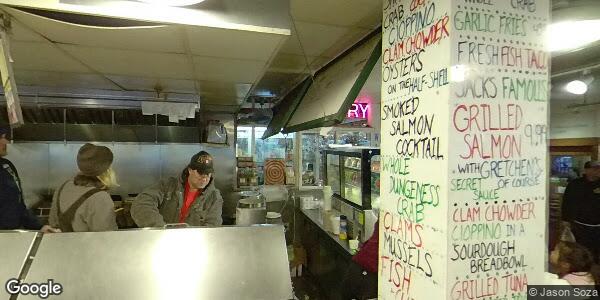 CRAB
CIOPPINO
CLAM CHOWDER
OYSTERS
ON THE HALF-SHELL
SMOKED
SALMON
COCKTAIL
WHOLE
DUNGENESS
CRAB
CLAMS
MUSSELS
FISH
WHOLE CRAB
GARLIC FRIES
FRESH FISH TACO
JACKS FAMOUS
GRILLED
SALMON 9.99
WITH GRETCHEN'S
SECRET OF COURSE
SAUCE
CLAM CHOWDER
CIOPPINO IN A
SOURDOUGH
BREADBOWL
GRILLED TUNA
RY
Google
© Jason Soza